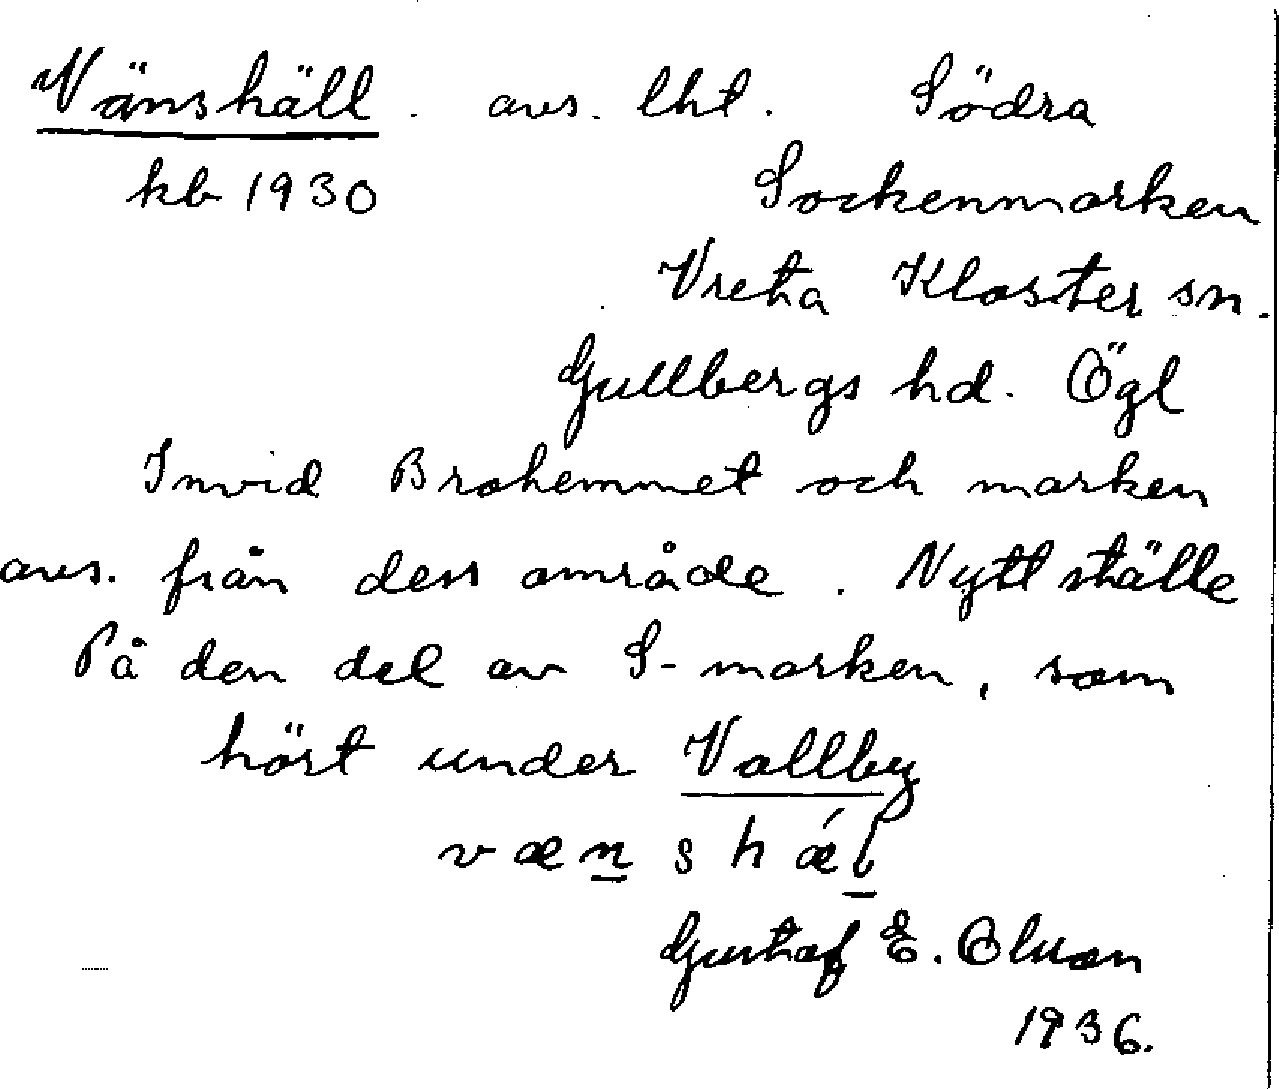 Vänshäll. avs. lht. Södra
kb 1930 Sockenmarken
Vreta Kloster sn.
Gullbergs hd. Ögl
Invid Brohemmet och marken
avs. från dess område. Nytt ställe
På den del av S-marken, som
hört under Vallby
væn s h ǽl
Gustaf E. Olsson
1936.